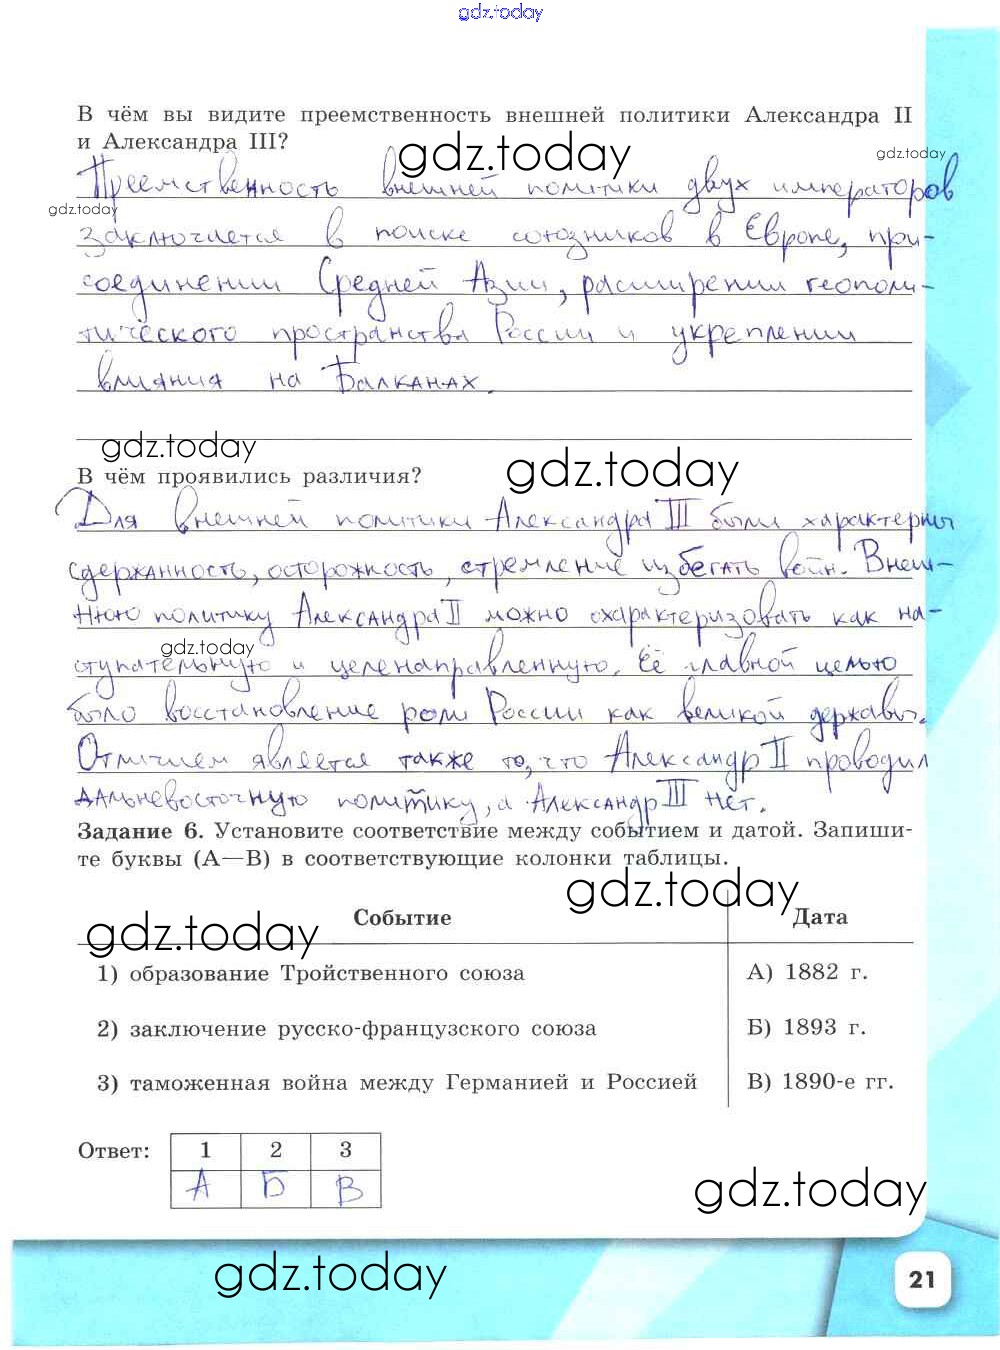 gdz.today
В чём вы видите преемственность внешней политики Александра II
и Александра III?
gdz.today
gdz.today
Преемственность внешней политики двух императоров
gdz.today
заключается в поиске союзников в Европе, при-
соединении Средней Азии, расширении геополи-
тического пространства России и укреплении
влияния на Балканах.
gdz.today
gdz.today
В чём проявились различия?
Для внешней политики Александра III были характерны
сдержанность, осторожность, стремление избегать войн. Внеш-
нюю политику Александра II можно охарактеризовать как на-
gdz.today
ступательную и целенаправленную. Её главной целью
было восстановление роли России как великой державы.
Отличием является также то, что Александр II проводил
дальневосточную политику, а Александр III нет.
Задание 6. Установите соответствие между событием и датой. Запиши-
те буквы (А—В) в соответствующие колонки таблицы.
gdz.today
gdz.today
Событие Дата
1) образование Тройственного союза А) 1882 г.
2) заключение русско-французского союза Б) 1893 г.
3) таможенная война между Германией и Россией В) 1890-е гг.
Ответ: 1 2 3
А Б В
gdz.today
gdz.today
21